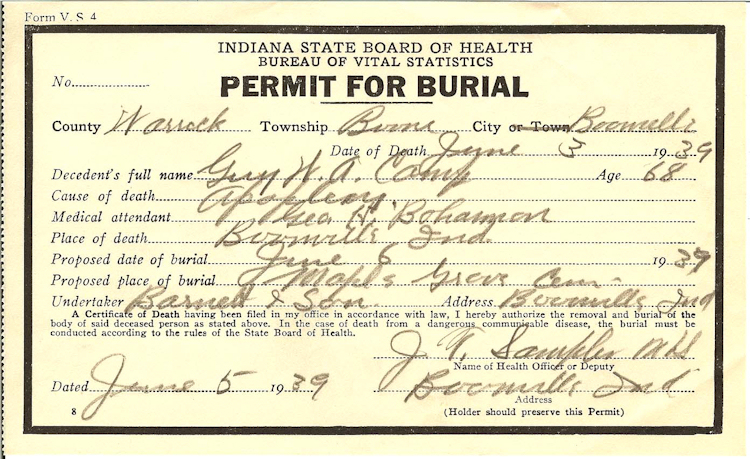 Form V. S 4
INDIANA STATE BOARD OF HEALTH
BUREAU OF VITAL STATISTICS
PERMIT FOR BURIAL
No.
County Warrick Township Boone City or Town Boonville
Date of Death June 3 1939
Decedent's full name Guy W. A. Camp Age 68
Cause of death Apoplexy
Medical attendant Geo H. Bohannon
Place of death Boonville Ind.
Proposed date of burial June 6 1939
Proposed place of burial Maple Grove Cem-
Undertaker Barnett & Son Address Boonville Ind
A Certificate of Death having been filed in my office in accordance with law, I hereby authorize the removal and burial of the
body of said deceased person as stated above. In the case of death from a dangerous communicable disease, the burial must be
conducted according to the rules of the State Board of Health.
J T. Samples MD
Name of Health Officer or Deputy
Dated June 5 1939 Boonville Ind
Address
8 (Holder should preserve this Permit)